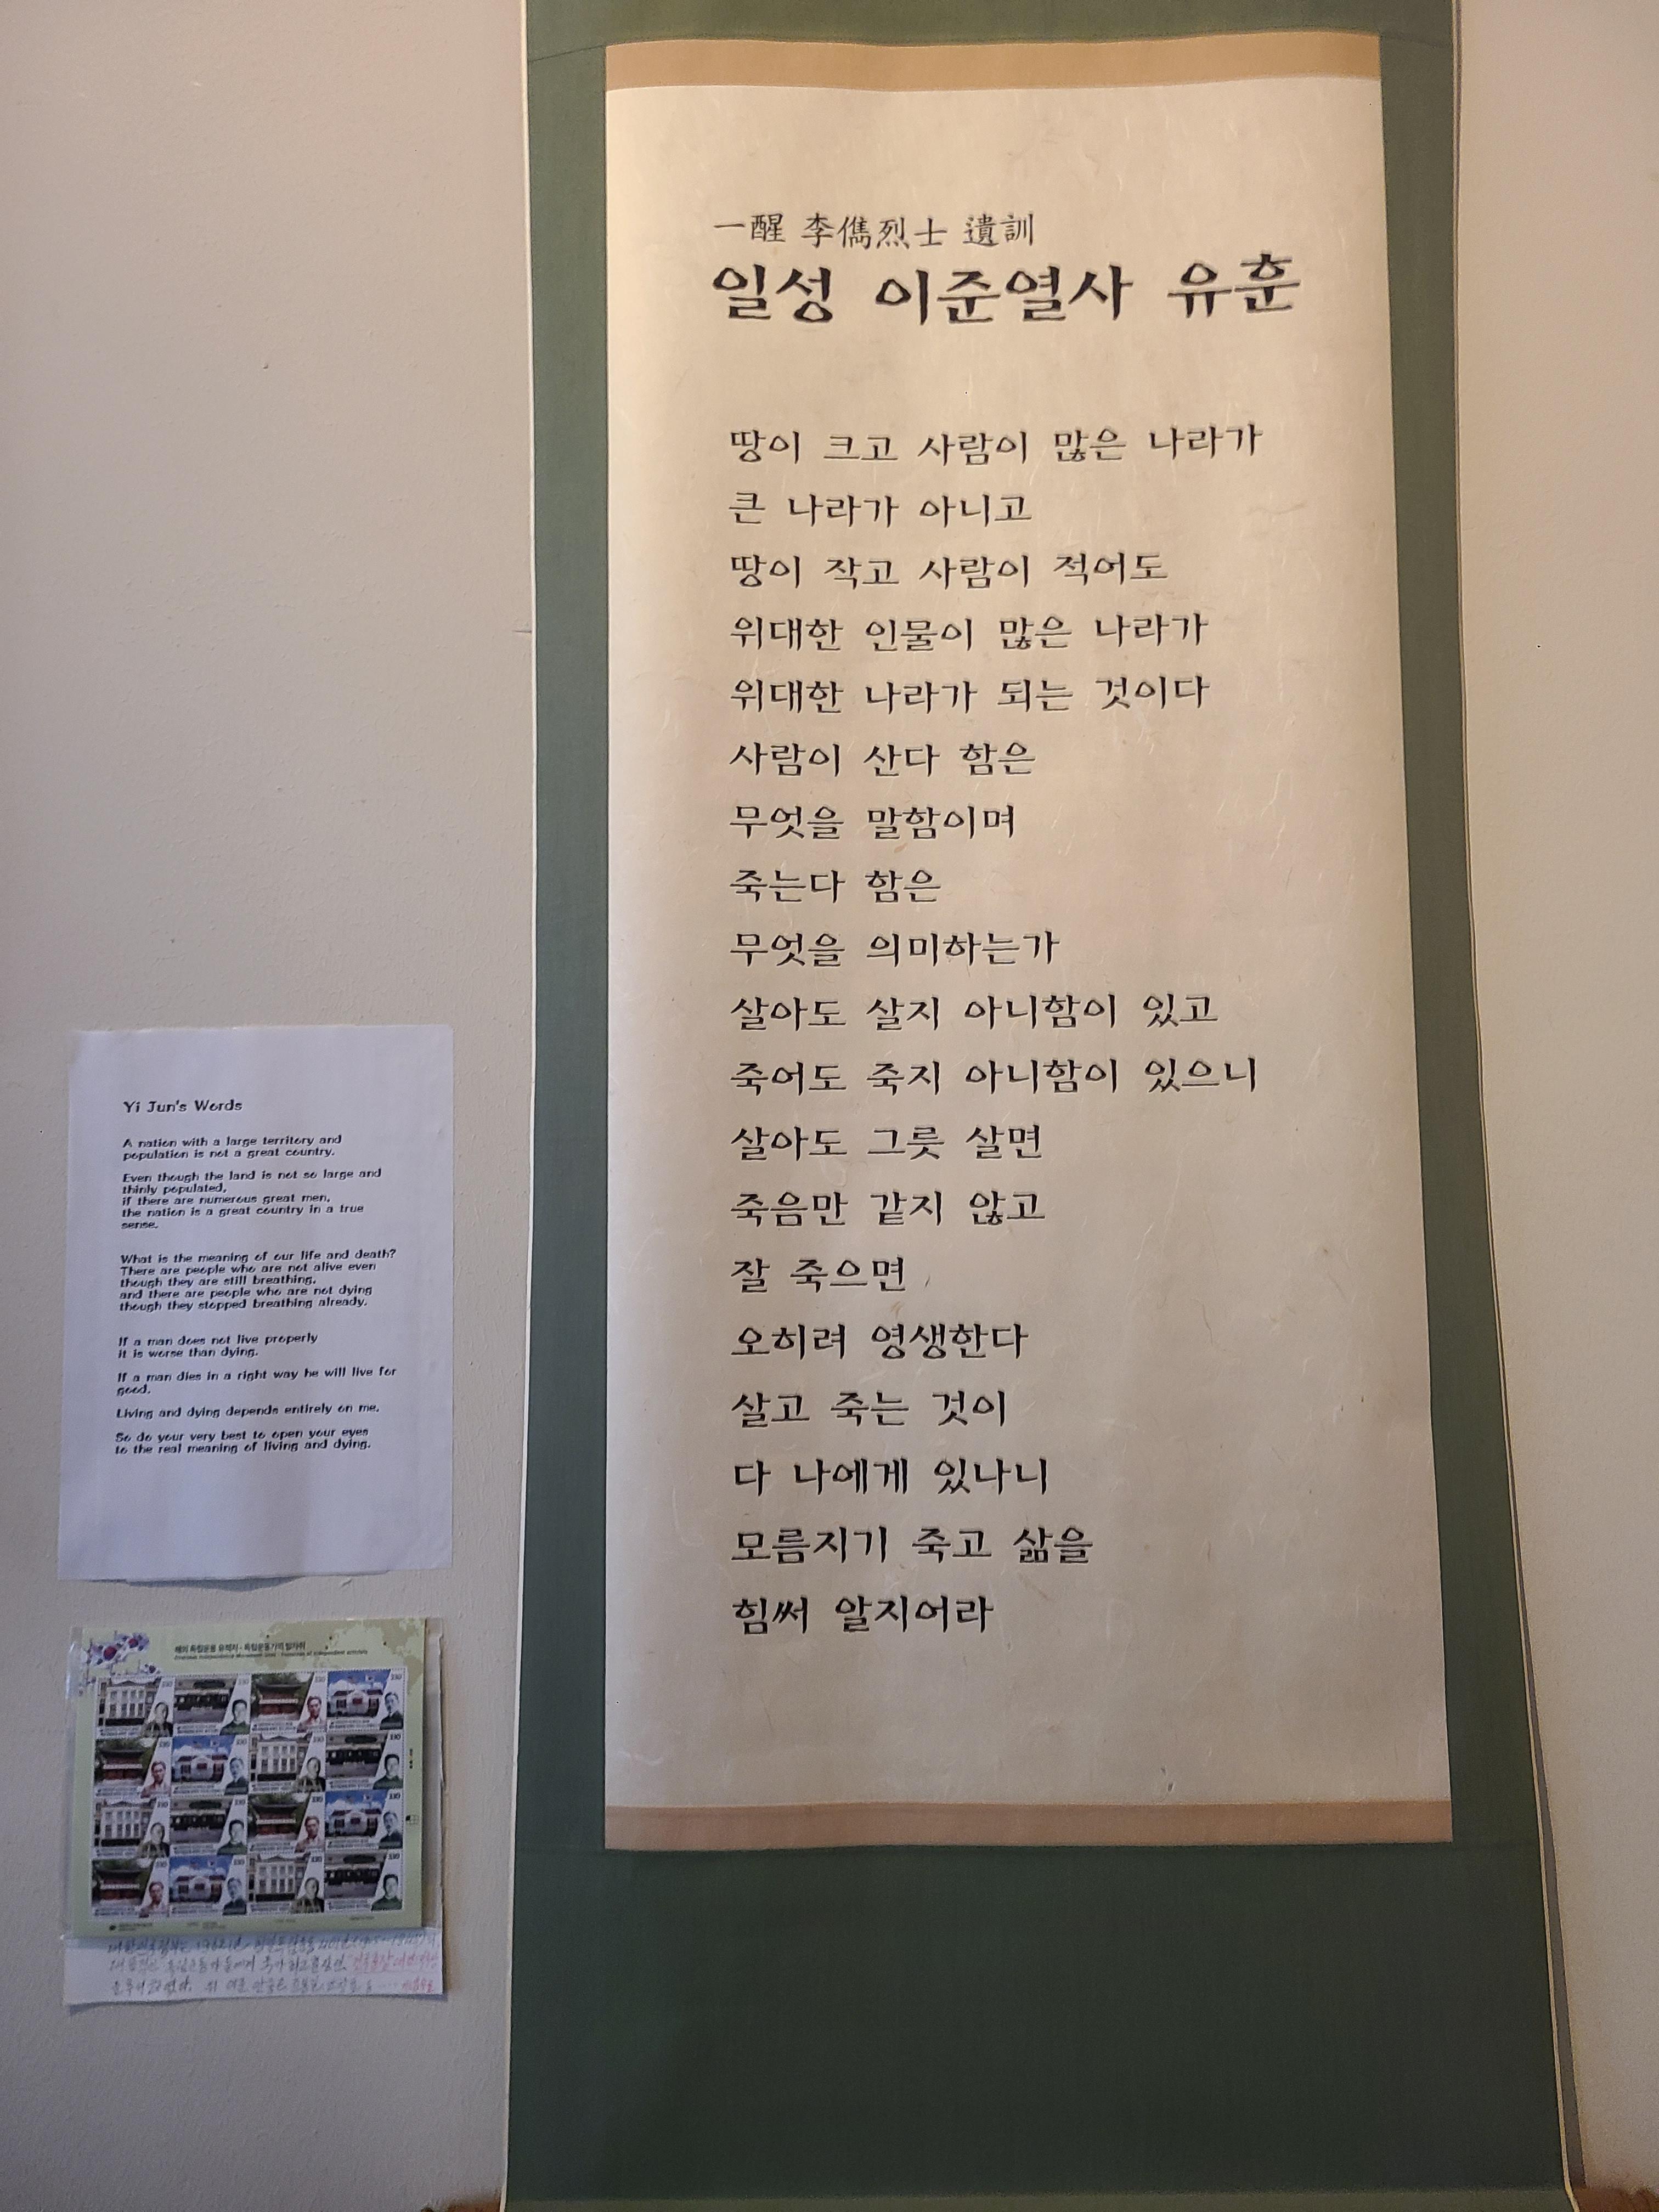 一醒 李儁烈士 遺訓
일성 이준열사 유훈
땅이 크고 사람이 많은 나라가
큰 나라가 아니고
땅이 작고 사람이 적어도
위대한 인물이 많은 나라가
위대한 나라가 되는 것이다
사람이 산다 함은
무엇을 말함이며
죽는다 함은
무엇을 의미하는가
살아도 살지 아니함이 있고
죽어도 죽지 아니함이 있으니
살아도 그릇 살면
죽음만 같지 않고
잘 죽으면
오히려 영생한다
살고 죽는 것이
다 나에게 있나니
모름지기 죽고 삶을
힘써 알지어라
Yi Jun's Words
A nation with a large territory and
population is not a great country.
Even though the land is not so large and
thinly populated,
if there are numerous great men,
the nation is a great country in a true
sense.
What is the meaning of our life and death?
There are people who are not alive even
though they are still breathing,
and there are people who are not dying
though they stopped breathing already.
If a man does not live properly
it is worse than dying.
If a man dies in a right way he will live for
good.
Living and dying depends entirely on me.
So do your very best to open your eyes
to the real meaning of living and dying.
해외 독립운동 유적지 - 독립운동가의 발자취
330 330 330 330
330 330 330 330
330 330 330 330
330 330 330 330